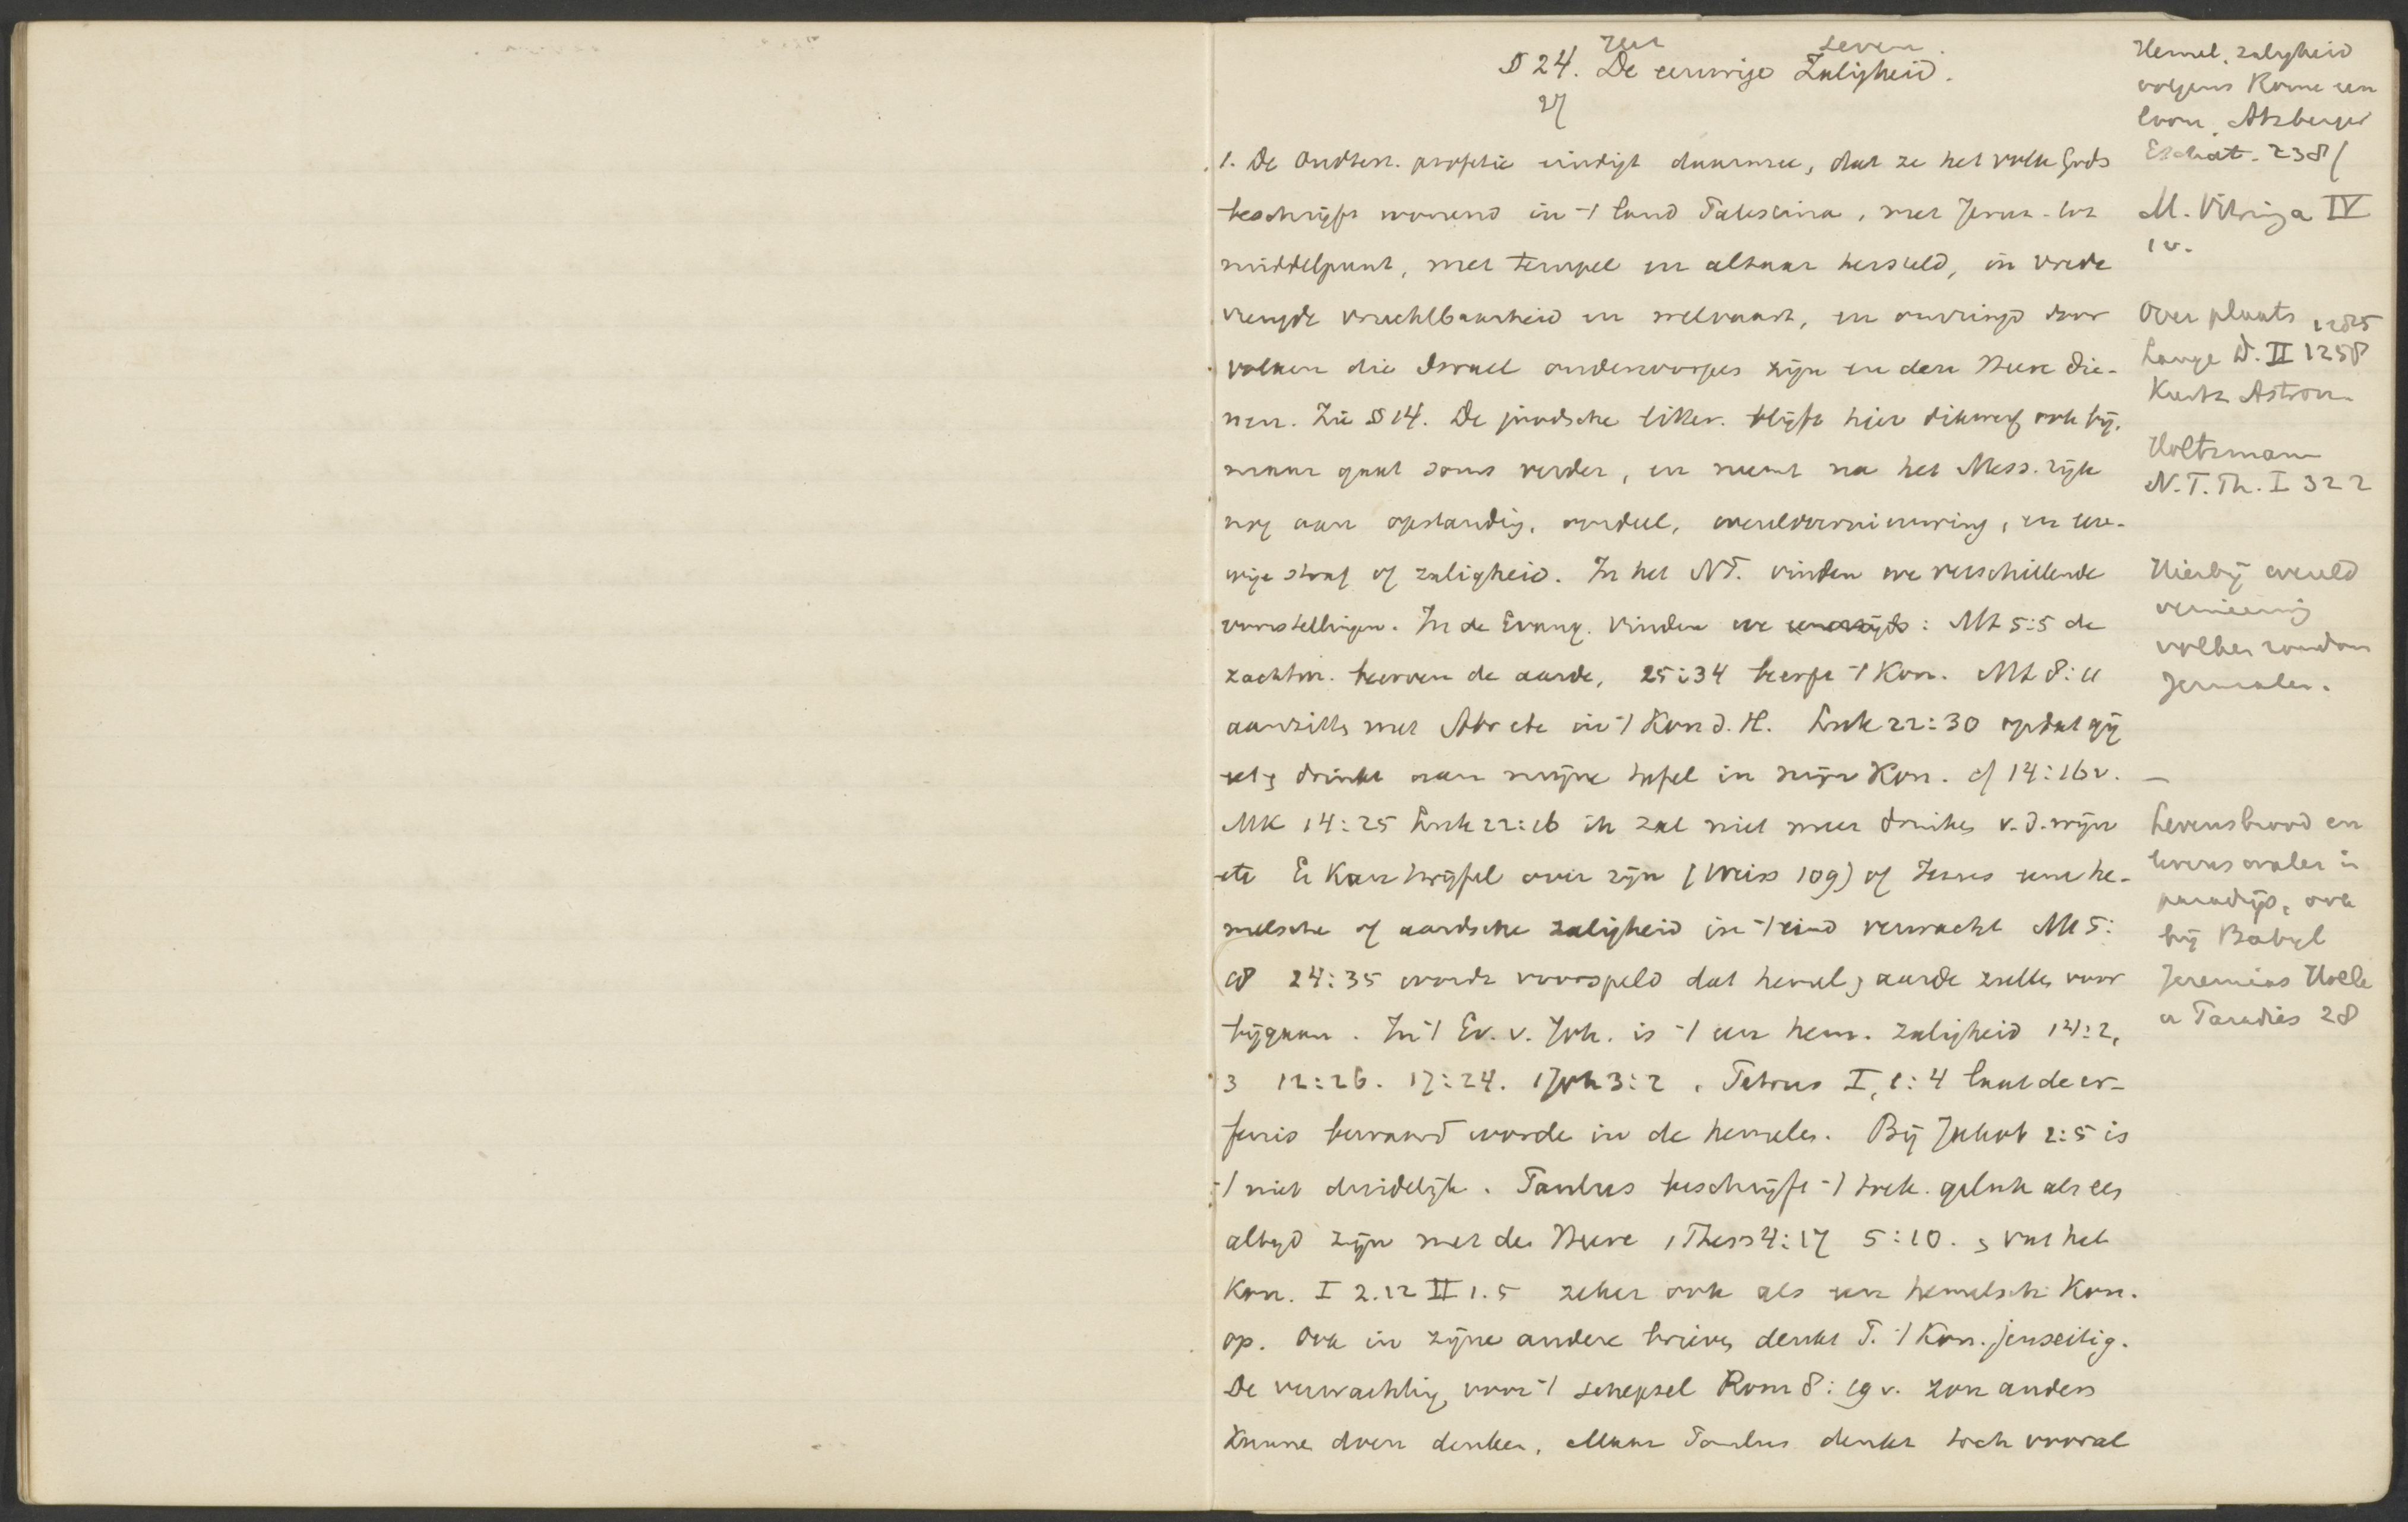 Het leven.
§ 24. De eeuwige Zaligheid.
27
1. De Oudtest. profetie eindigt daarmee, dat ze het volk Gods
beschrijft wonend in 't land Palestina, met Jeruz. tot
middelpunt, met tempel en altaar hersteld, in vrede
vreugde vruchtbaarheid en welvaart, en omringd door
volken die Israel onderworpen zijn en den Heere die-
nen. Zie § 14. De joodsche litter. blijft hier dikwerf ook bij,
maar gaat soms verder, en neemt na het Mess. rijk
nog aan opstanding, oordeel, wereldvernieuwing, en eeu-
wige straf of zaligheid. In het NT. vinden we verschillende
voorstellingen. In de Evang. vinden we : Mt 5:5 de
zachtm. beerven de aarde, 25:34 beerft 't Kon. Mt 8:11
aanzitten met Abr etc in 't Kon d. H. Luk 22:30 opdat gij
eet en drinkt aan mijne tafel in mijn Kon. cf 14:16v.
Mk 14:25 Luk 22:16 ik zal niet meer drinken v. d. wijn
etc Er kan twijfel over zijn (Weiss 109) of Jezus eene he-
melsche of aardsche zaligheid in 't eind verwacht Mt 5:
18 24:35 wordt voorspeld dat hemel en aarde zullen voor
bijgaan. In 't Ev. v. Joh. is 't een hem. zaligheid 14:2,
3 12:26. 17:24. 1 Joh 3:2. Petrus I, 1:4 laat de er-
fenis bewaard worden in de hemelen. Bij Jakob 2:5 is
't niet duidelijk. Paulus beschrijft 't toek. geluk als een
altijd zijn met den Heere 1 Thess 4:17 5:10. en vat het
Kon. I 2.12 II 1.5 zeker ook als een hemelsch Kon.
op. Ook in zijne andere brieven denkt P. 't Kon. jenseitig.
De verwachting voor 't schepsel Rom 8:19 v. zou anders
kunnen doen denken, Maar Paulus denkt toch vooral
Hemel. zaligheid
volgens Rome een
loon. Atzberger
Eschat. 238 f
M. Vitringa IV
1 v.
Over plaats 1285
Lange D. II 1258
Kurtz Astron.
Holtzmann
N.T.Th. I 322
Hierbij wereld
vernieuwing
volken rondom
Jeruzalem.
—
Levensbrood en
levenswater in
paradijs, ook
bij Babyl
Jeremias Holle
u Paradies 28